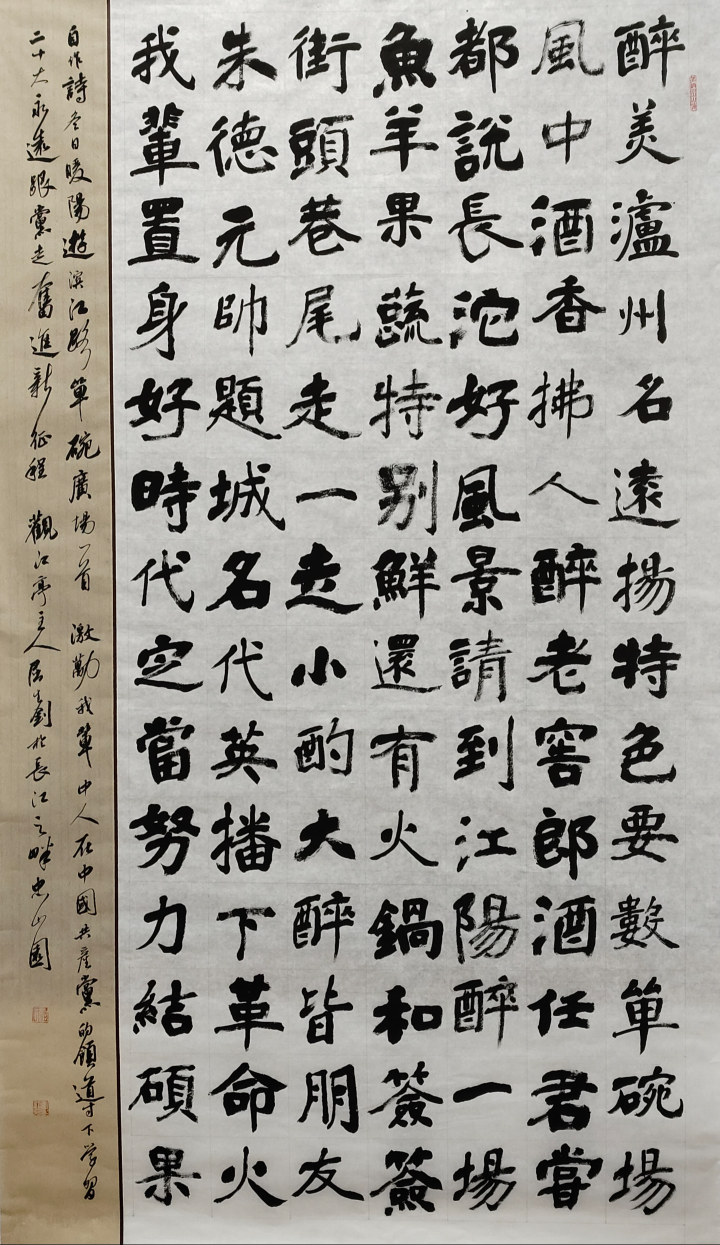 醉美瀘州名遠揚特色要數簞碗場
風中酒香拂人醉老窖郎酒任君嘗
都說長沱好風景請到江陽醉一場
魚羊果蔬特别鮮還有火鍋和簽簽
街頭巷尾走一走小酌大醉皆朋友
朱德元帥題城名代英播下革命火
我輩置身好時代定當努力結碩果
自作詩冬日暖陽遊滨江路簞碗廣場一首 激勵我輩中人在中國共産黨的領導下学習
二十大永遠跟黨走奮進新征程 觀江亭主人居劍於長江之畔忠山園